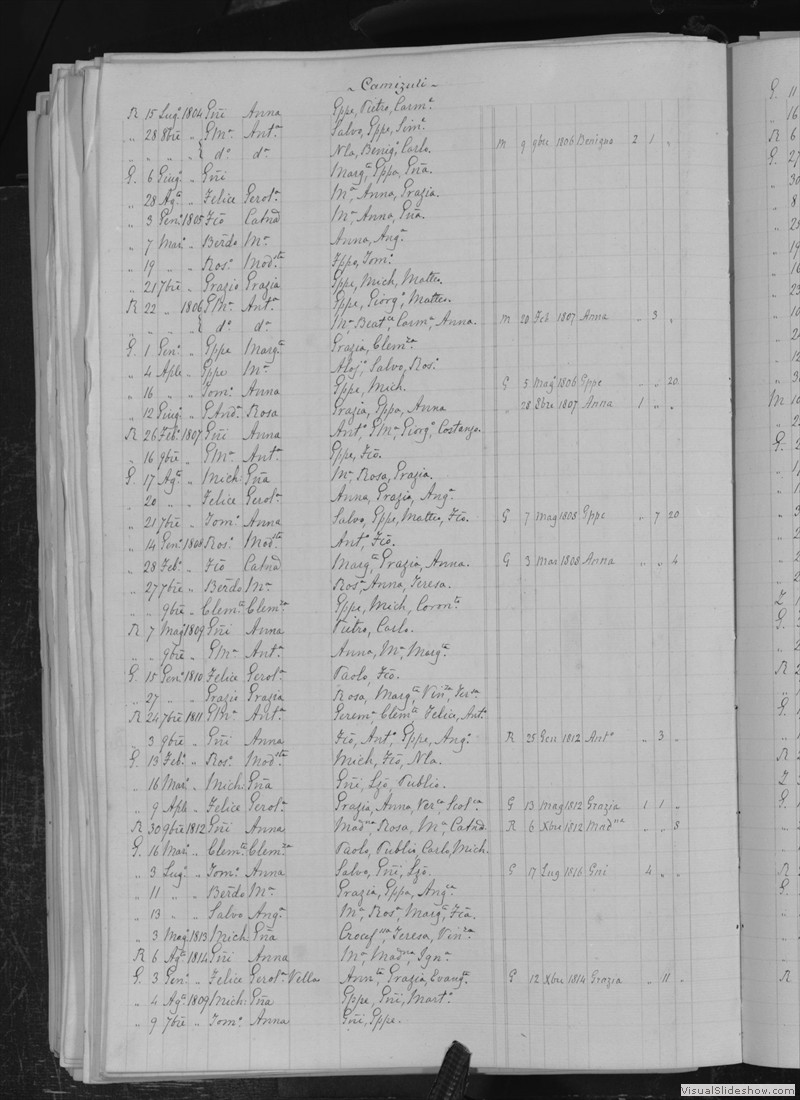 - Camizuli -
R 15 Lugo 1804 Gni Anna Gppe, Pietro, Carma
" 28 8bre " GMa Anta Salvo, Gppe, Sime
" " " " { do da Nla, Benigo, Carlo. M 9 9bre 1806 Benigna 2 1 "
G. 6 Giugo " Gni Marga, Gppa, Gna.
" 28 Agto " Felice Gerola Ma, Anna, Grazia.
" 3 Geno 1805 Fco Catnd Ma, Anna, Gna.
" 7 Maro " Berdo Ma Anna, Anga
" 19 " " Roso Modsta Gppa, Tomo
" 21 7bre " Grazio Grazia Gppe, Mich, Matteo.
R 22 " 1806 GMa Anta Gppe, Giorgo, Matteo.
" " " " { do da Ma, Beata, Carma, Anna. M 20 Feb 1807 Anna " 3 "
G. 1 Geno " Gppe Marga Grazia, Clemza
" 4 Aple " Gppe Ma Alojo, Salvo, Roso
" 16 " " Tomo Anna Gppe, Mich. G 5 Mag 1806 Gppe " " 20
" 12 Giugo " GAndo Rosa Grazia, Gppa, Anna " 28 Xbre 1807 Anna 1 " "
R 26 Febo 1807 Gni Anna Anto, GMa, Giorgo, Costanza.
" 16 9bre " GMa Anta Gppe, Fco.
G. 17 Agto " Mich: Gna Ma, Rosa, Grazia.
" 20 " " Felice Gerola Anna, Grazia, Anga
" 21 7bre " Tomo Anna Salvo, Gppe, Matteo, Fco. G 7 Mag 1808 Gppe " 7 20
" 14 Geno 1808 Roso Modsta Anto, Fco.
" 28 Febo " Fco Catnd Marga, Grazia, Anna. G 3 Mar 1808 Anna " " 4
" 27 7bre " Berdo Ma Rosa, Anna, Teresa.
" " 9bre " Clemte Clemza Gppe, Mich, Coronto
R 7 Mago 1809 Gni Anna Pietro, Carlo.
" " 9bre " GMa Anta Anna, Ma, Marga
G. 15 Geno 1810 Felice Gerola Paolo, Fco.
" 27 " " Grazio Grazia Rosa, Marga, Vinza, Tersa
R 24 7bre 1811 GMa Anta Gerema, Clemte, Felice, Anto
" 3 9bre " Gni Anna Fco, Anto, Gppe, Ango R 25 Gen 1812 Anto " 3 "
G. 13 Febo " Roso Modsta Mich, Fco, Nla.
" 16 Maro " Mich: Gna Gni, Lzo, Publio.
" 9 Aple " Felice Gerola Grazia, Anna, Verca Scolca G 13 Mag 1812 Grazia 1 1 "
R 30 9bre 1812 Gni Anna Madna, Rosa, Ma, Catnd. R 6 Xbre 1812 Madna " " 8
G. 16 Maro " Clemte Clemza Paolo, Publio, Carlo, Mich.
" 3 Lugo " Tomo Anna Salvo, Gni, Lzo. G 17 Lug 1816 Gni 4 " "
" 11 " " Berdo Ma Grazia, Gppa, Anga
" 13 " " Salvo Anga Ma, Rosa, Marga, Fca.
" 3 Mago 1813 Mich: Gna Crocefssa, Teresa, Vinza
R 6 Agto 1814 Gni Anna Ma, Madna, Igna
G. 3 Geno " Felice Gerola Vella Annta, Grazia, Evanga G 12 Xbre 1814 Grazia " 11 "
" 4 Agto 1809 Mich: Gna Gppe, Gni, Marto
" 9 7bre " Tomo Anna Gni, Gppe.
VisualSlideshow.com